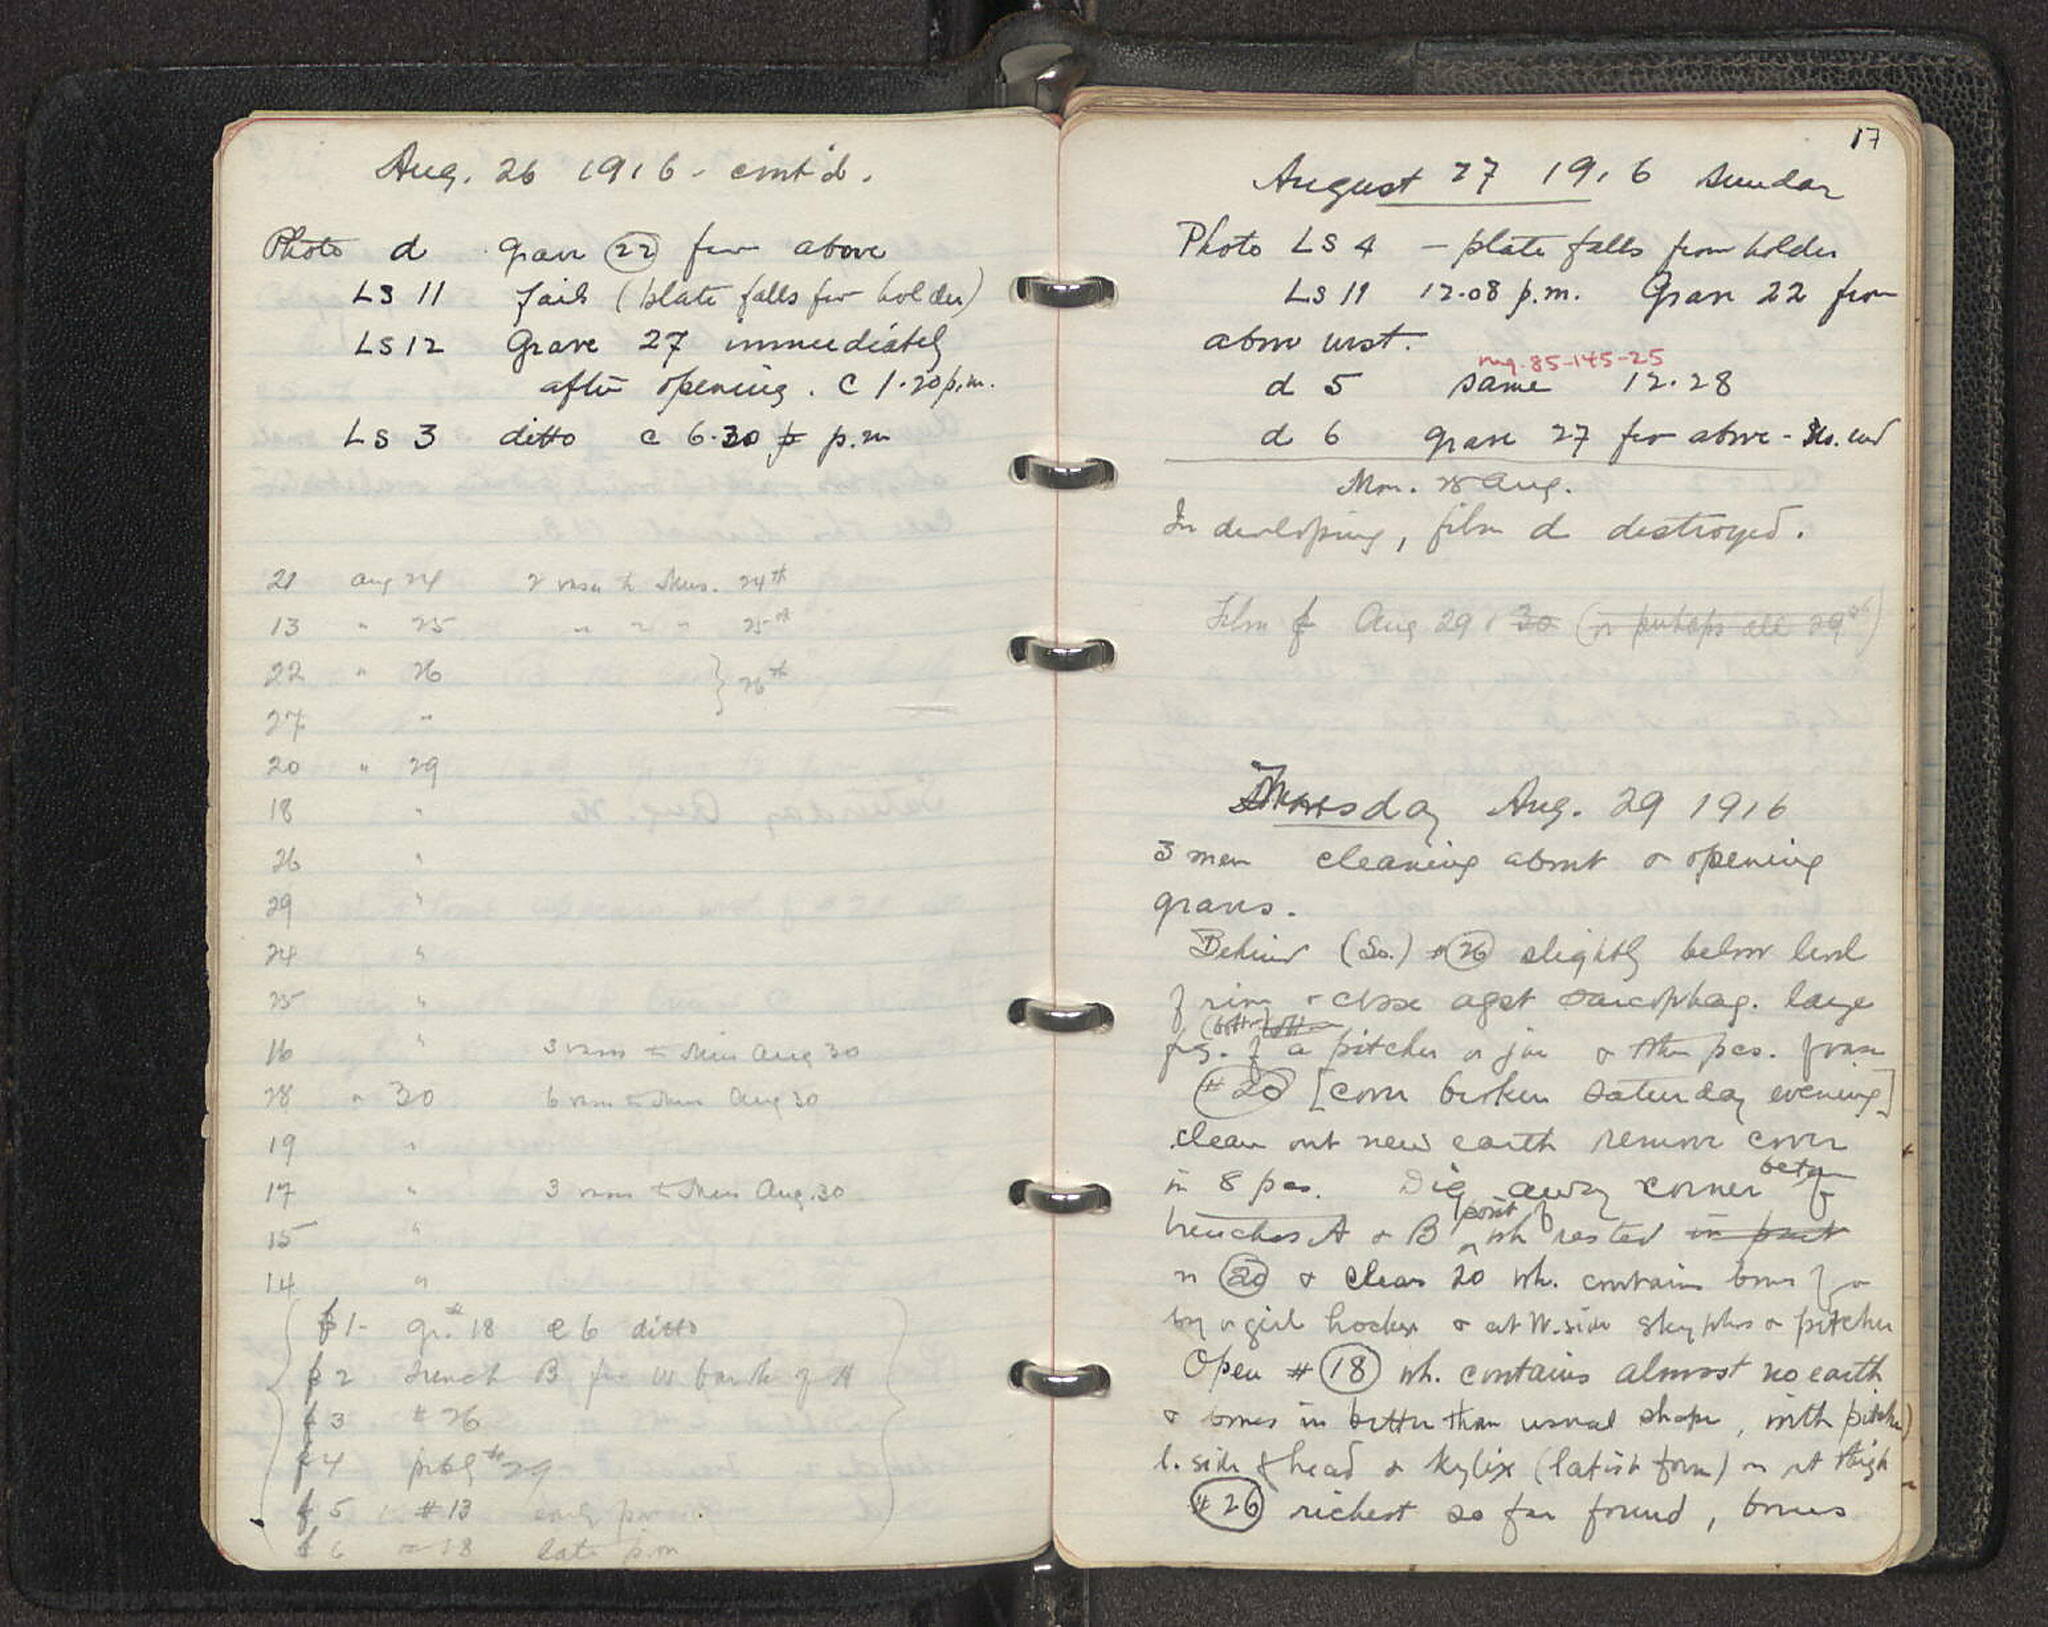 Aug. 26 1916 - cont'd.
Photo d grave 22 from above
LS 11 fails (plate falls fr holder)
LS 12 Grave 27 immediately
after opening. c 1.20 p.m.
LS 3 ditto c 6.30 p p.m
21 Aug 24 2 vases to Mus. 24th
13 " 25 " " " 25th
22 " 26 } 26th
27 "
20 " 29
18 "
26 "
29 "
24 "
25 "
16 " 3 vases to Mus Aug 30
28 " 30 6 vases to Mus Aug 30
19 "
17 " 3 vases to Mus Aug. 30
15 "
14 "
f 1- gr. # 18 c 6 ditto
f 2 Trench B fr W bank of A
f 3 # 26
f 4 prbly # 29
f 5 # 13 early pm
f 6 18 late p.m
17
August 27 1916 Sunday
Photo LS 4 - plate falls from holder
LS 11 12.08 p.m. Grave 22 from
above west.
neg. 85-145-25
d 5 same 12.28
d 6 grave 27 fr above - So. end
Mon. 28 Aug.
In developing, film d destroyed.
Film f Aug 29 30 (or perhaps all 29th)
Tuesday Aug. 29 1916
3 men cleaning about & opening
graves.
Behind (So.) 26 slightly below level
of rim & close agst sarcophag. large
(bottom)
frg. of a pitcher or jar & other pcs. from
# 20 [cover broken Saturday evening]
clean out new earth remove cover
in 8 pcs. Dig away corner betw
trenches A & B part of wh rested in part
on 20 & clear 20 wh. contains bones of a
boy or girl & at W. side skyphos & pitcher
Open # 18 wh. contains almost no earth
& bones in better than usual shape, with pitcher
l. side of head & kylix (latish form) on rt thigh
# 26 richest so far found, bones